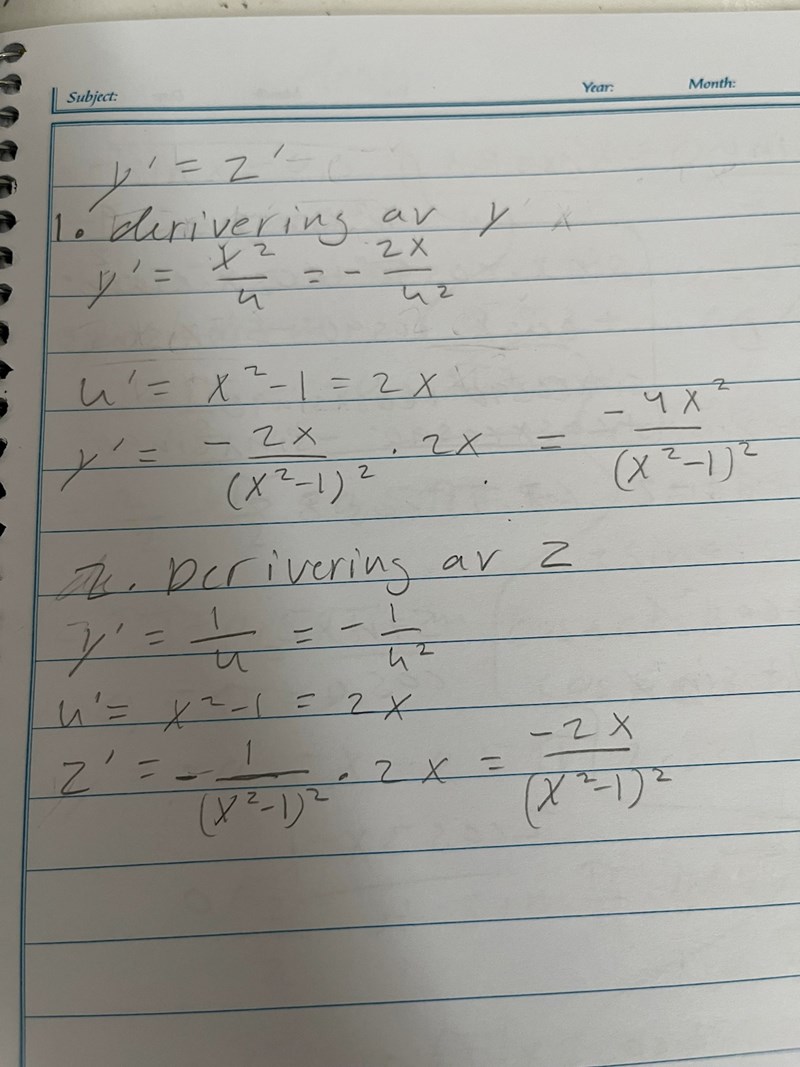 Subject: Year: Month:
y' = z'
1. derivering av y
y' = x²/u = - 2x/u²
u' = x²-1 = 2x
y' = - 2x/(x²-1)² · 2x = -4x²/(x²-1)²
2. Derivering av z
y' = 1/u = - 1/u²
u' = x²-1 = 2x
z' = - 1/(x²-1)² · 2x = -2x/(x²-1)²